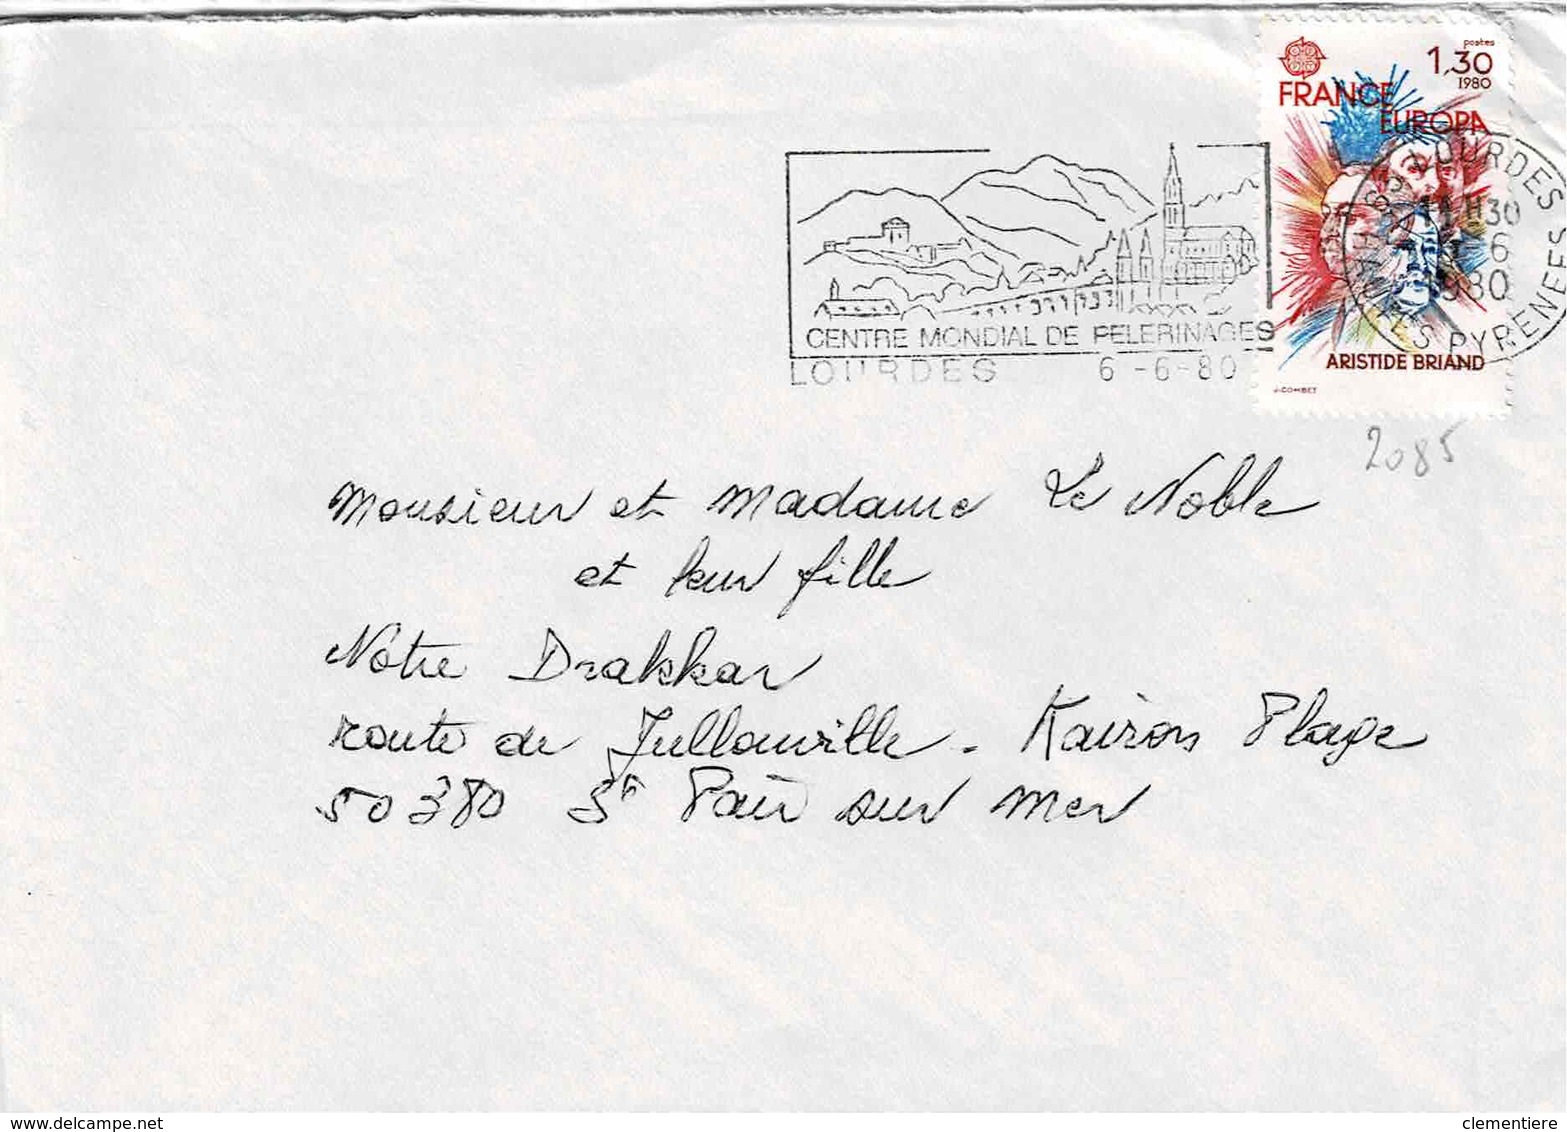 postes
1,30
1980
FRANCE
EUROPA
LOURDES
HAUTES PYRENEES
11H30
6-6
1980
CENTRE MONDIAL DE PELERINAGES
LOURDES 6-6-80
ARISTIDE BRIAND
J.COMBET
2085
Monsieur et Madame Le Noble
et leur fille
Notre Drakkar
route de Jullouville - Kairon Plage
50380 St Pair sur mer
www.delcampe.net
clementiere